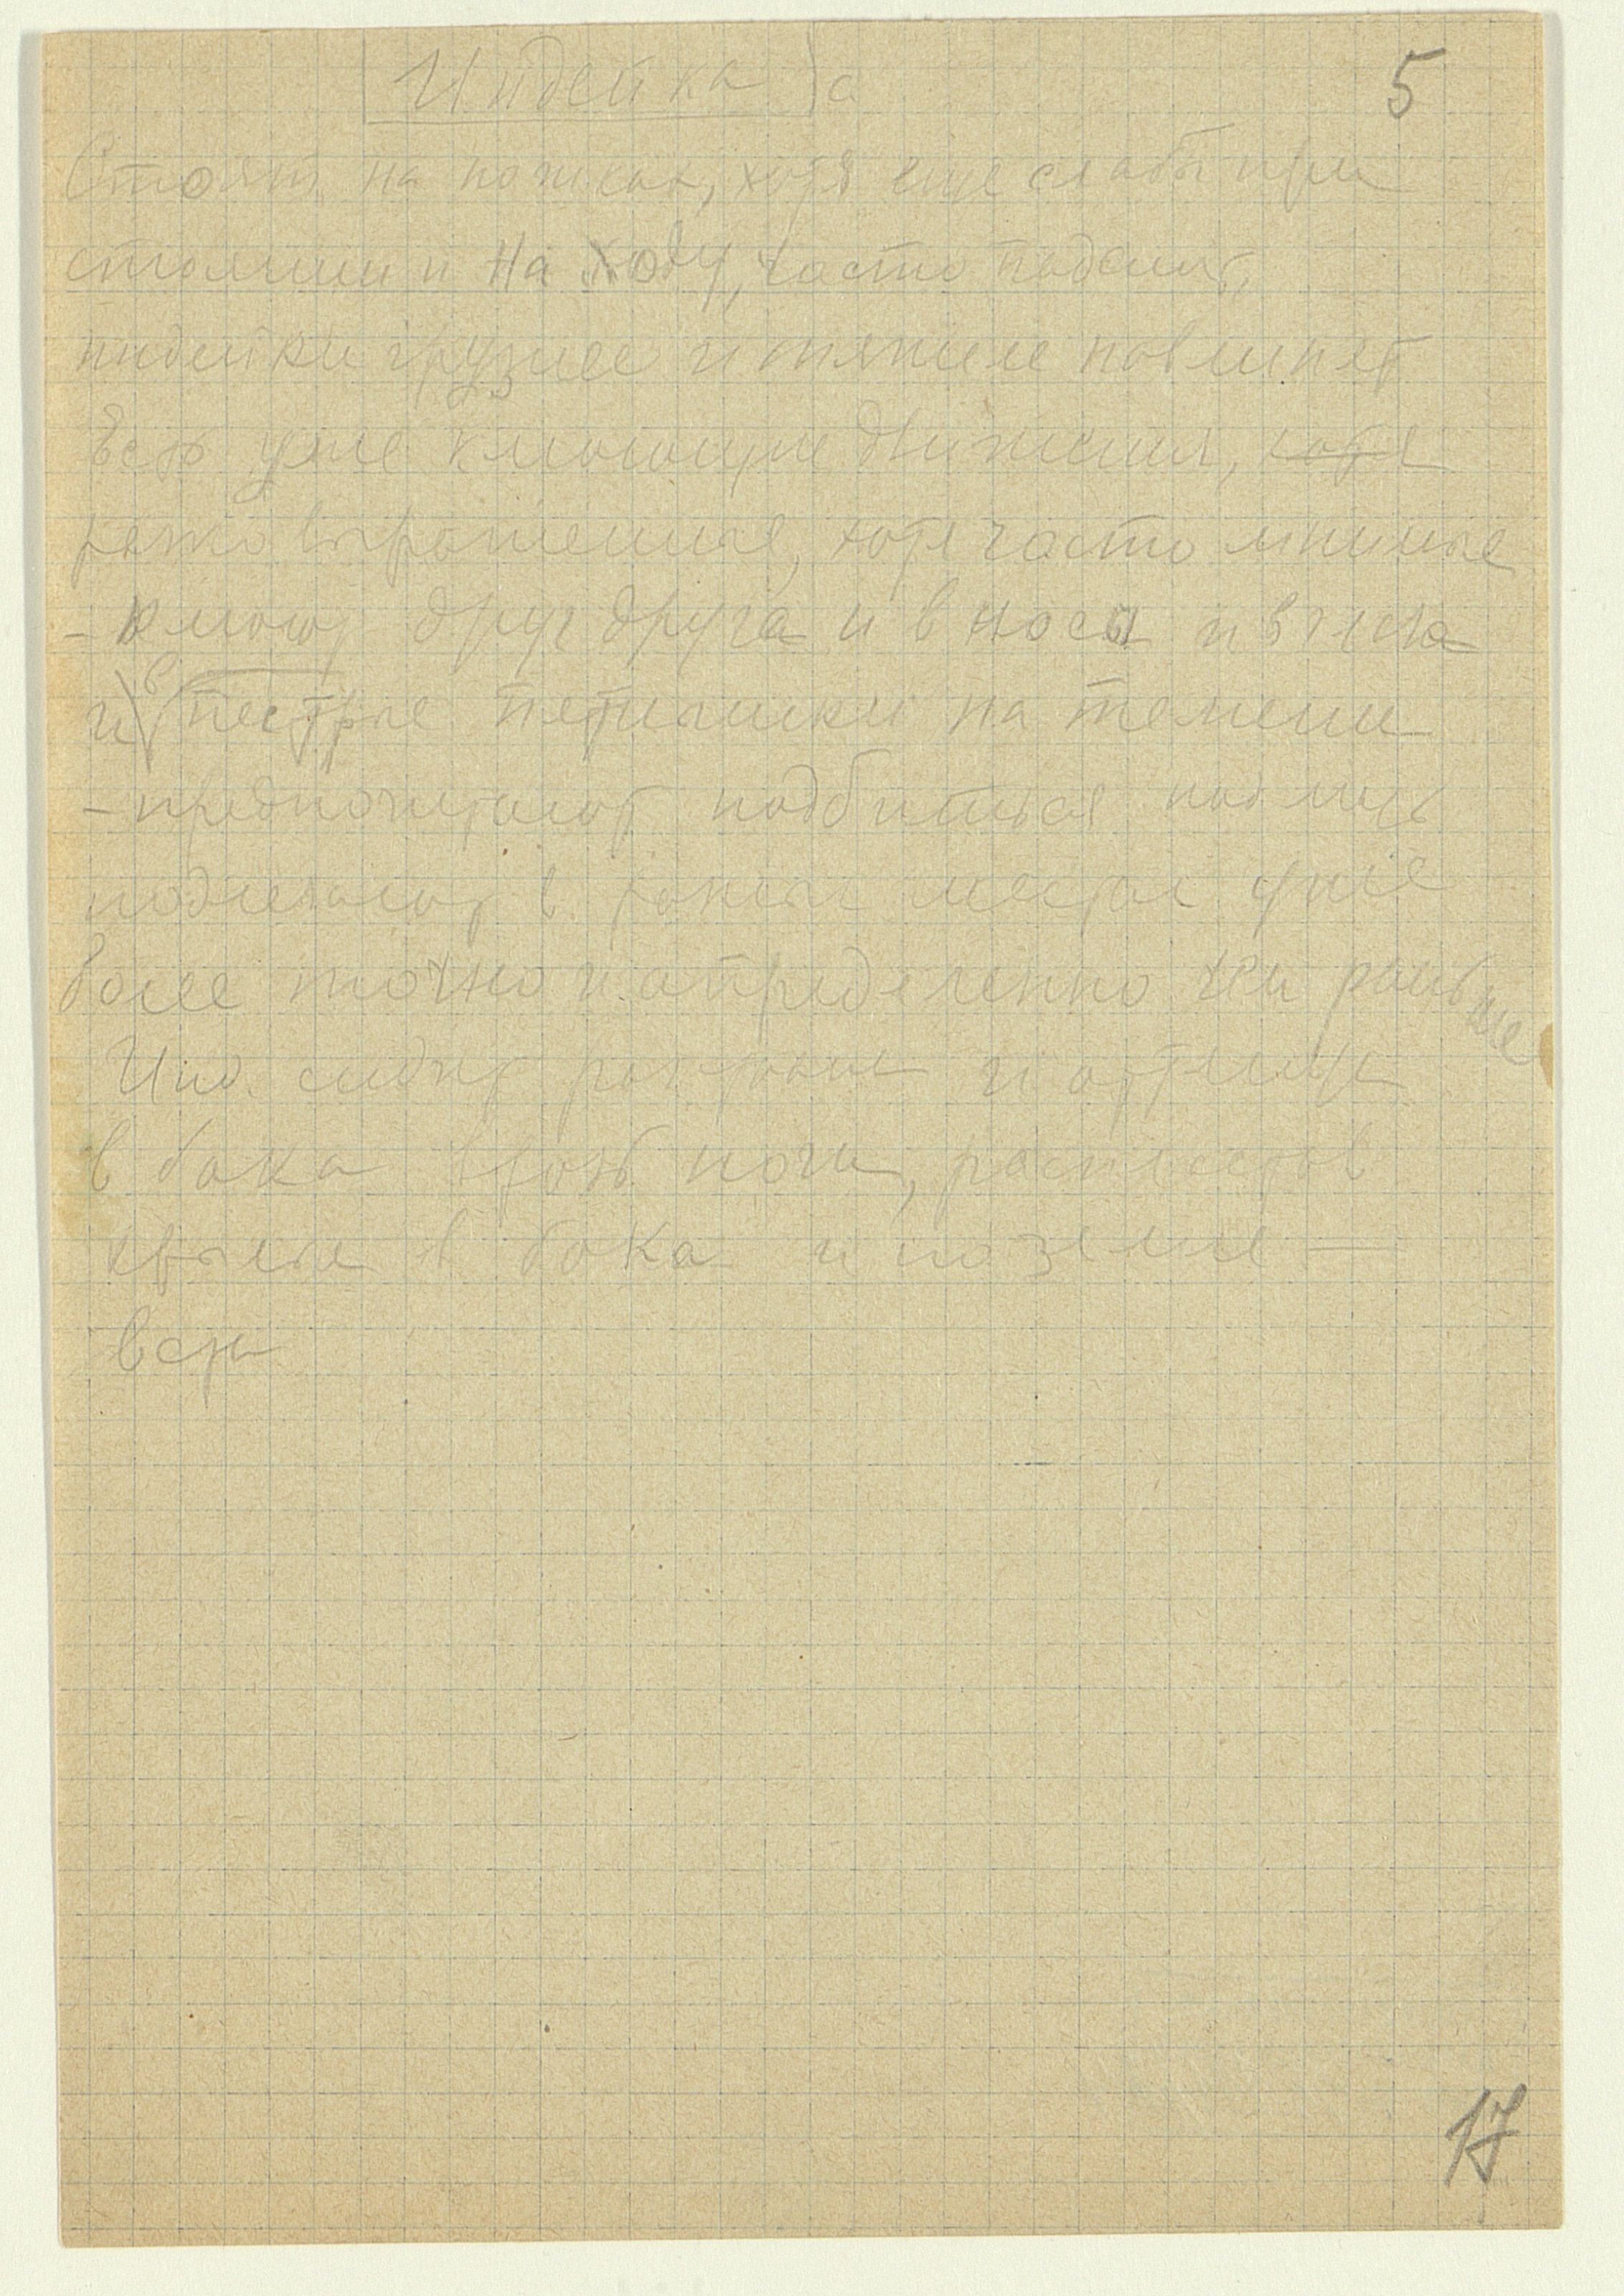 Индейка а
5
Стоят на ножках, хотя еще слабы при
стоянии и на ходу, часто падают,
индейки грузнее и тяжелее
Есть уже клюющие движения, хотя
резко выраженные, хотя часто мнимые
- клюют друг друга и в носы и в глаза
и в пестрые пятнышки на темени
- предпочитают подбиться под
подлезают в такие места уже
более точно и определенно чем раньше
Инд. сидят
в бока врозь ноги, распластав
крылья в бока и по земле —
17